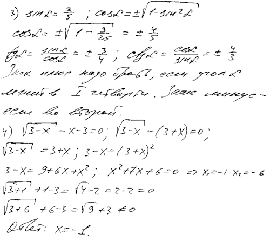 3) sin α = 3/5 ; cos α = ±√(1 - sin² α)
cos α = ±√(1 - 9/25) = ± 4/5
tg α = sin α/cos α = ± 3/4 ; ctg α = cos α/sin α = ± 4/3
Знак плюс надо брать, если угол α
лежит в I четверти. Знак минус -
если во второй.
4) √(3-x) - x - 3 = 0; √(3-x) - (3+x) = 0;
√(3-x) = 3+x; 3-x = (3+x)²
3-x = 9+6x+x²; x²+7x+6=0 ⇒ x₁=-1 x₂=-6
√(3+1) +1-3 = √4 -2 = 2-2=0
√(3+6) +6-3 = √9 +3 ≠ 0
Ответ: x = -1.